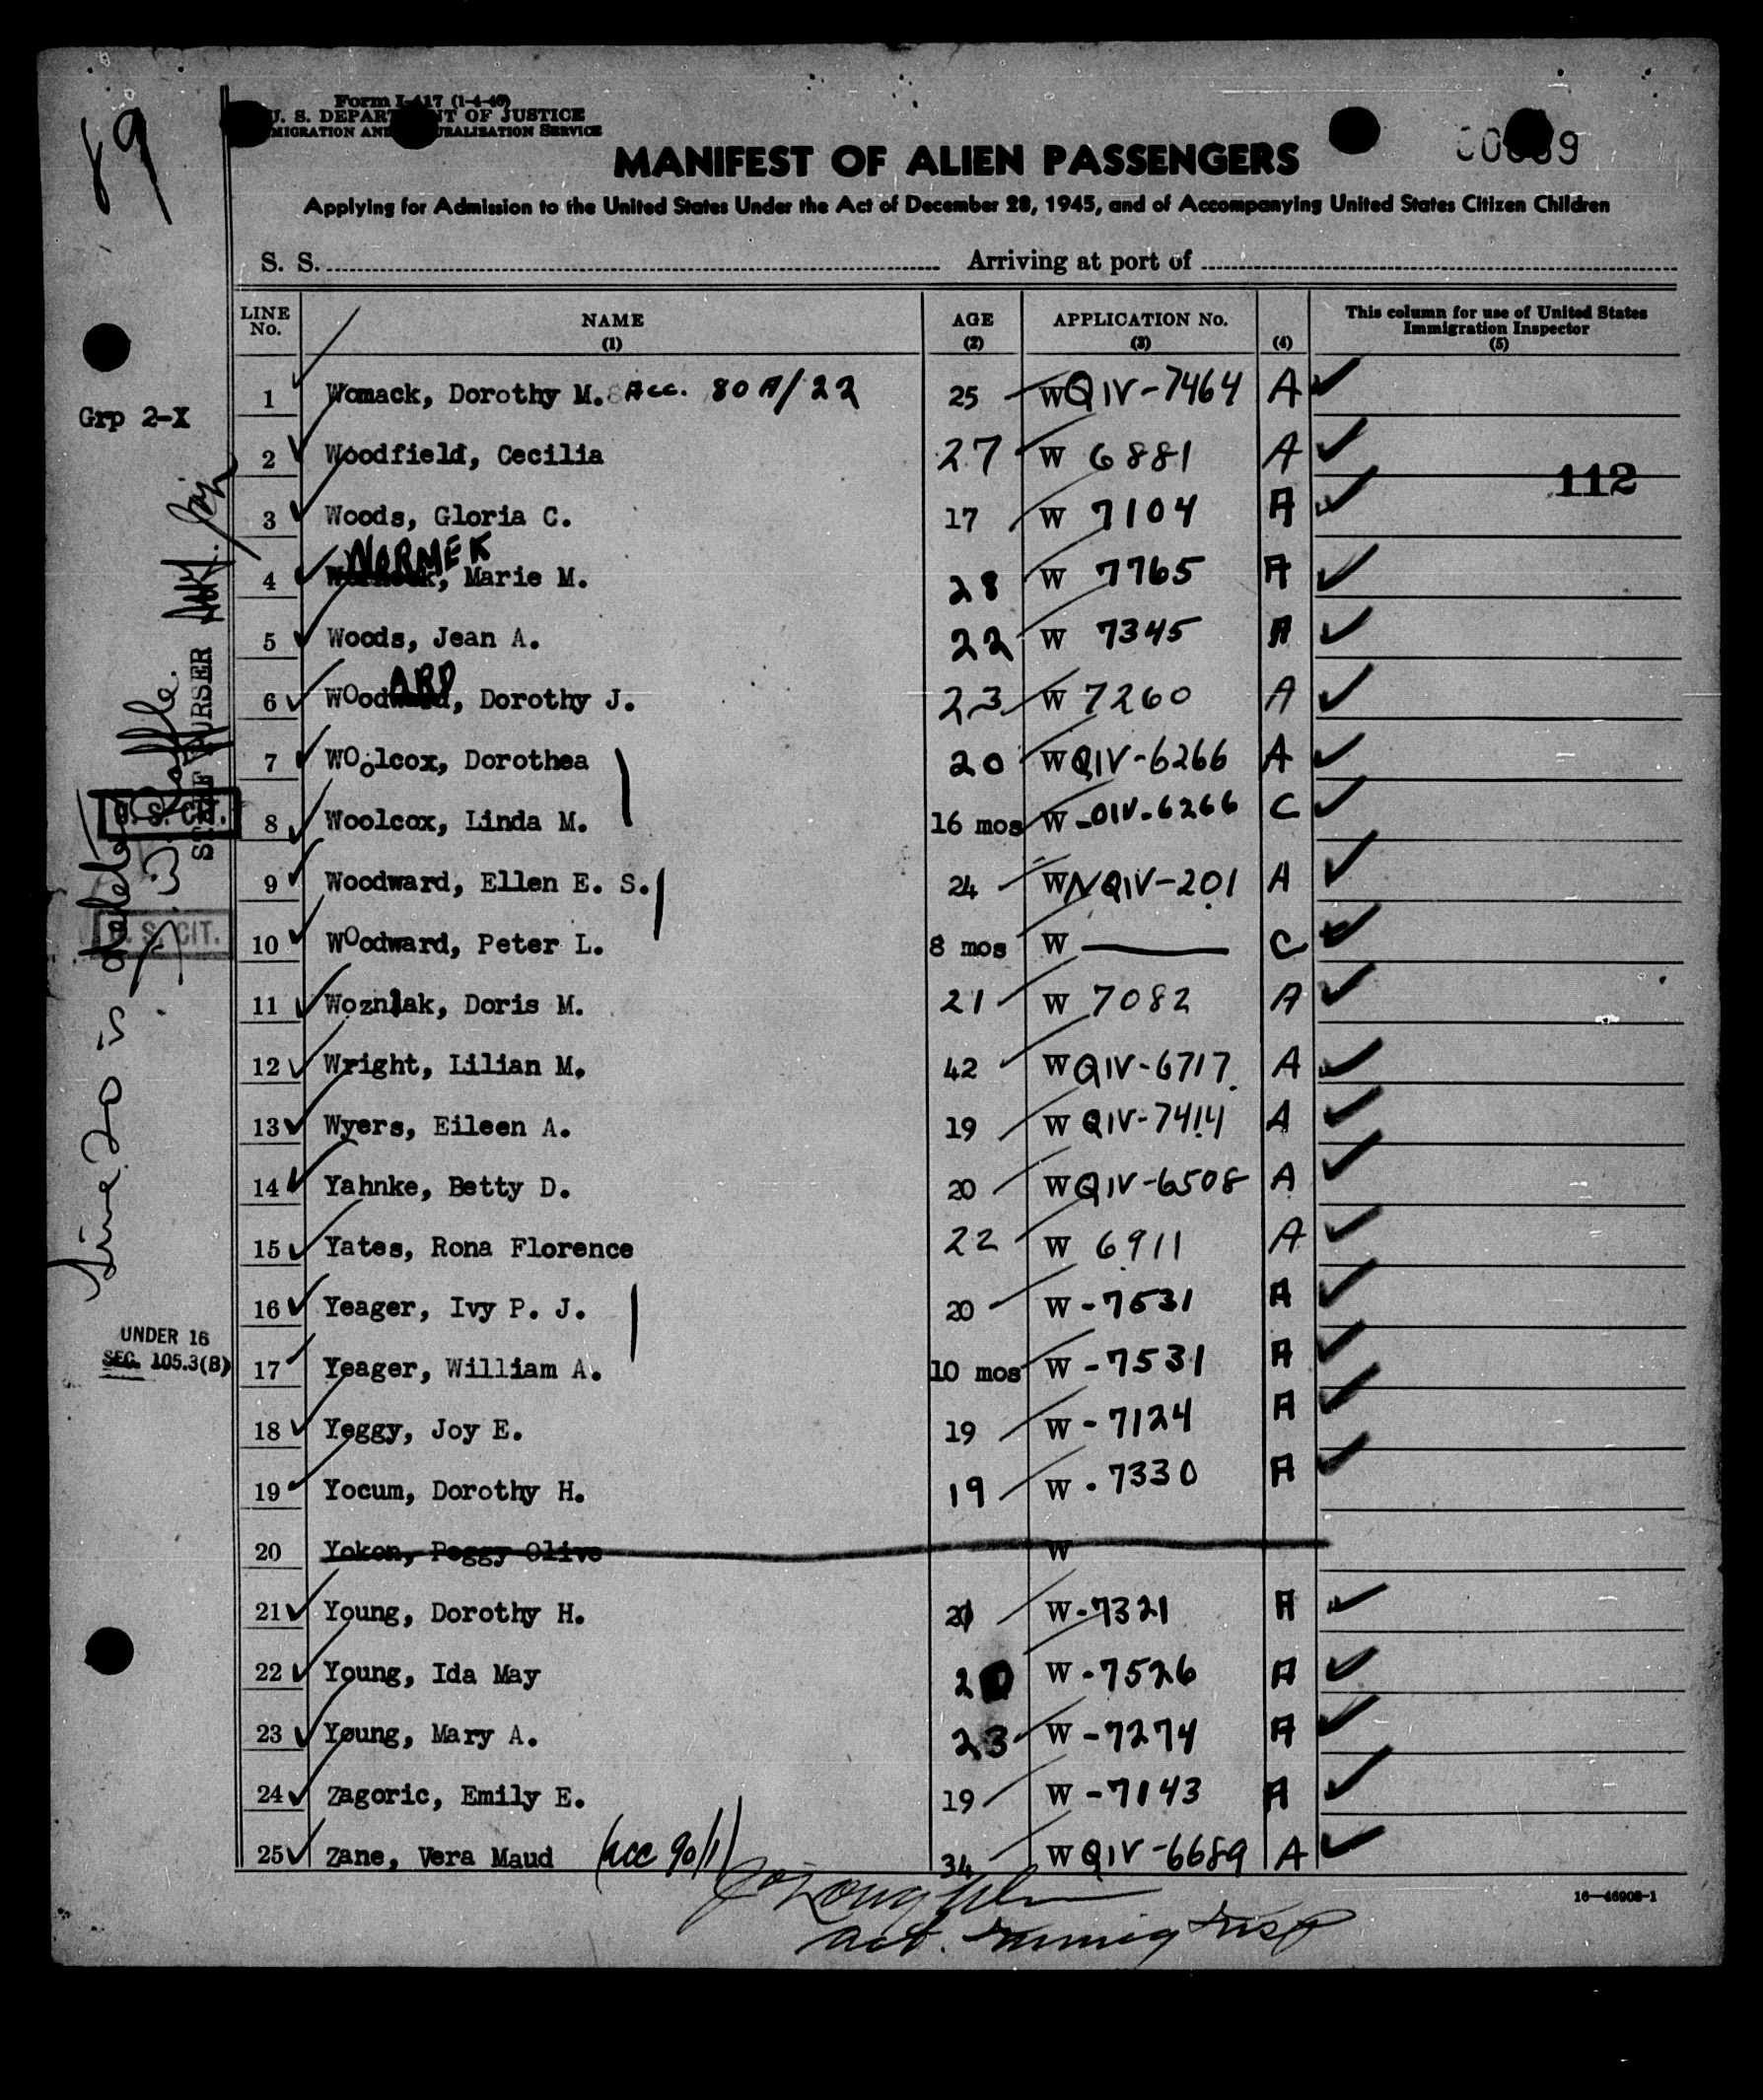 89
Form I-417 (1-4-46)
U. S. DEPARTMENT OF JUSTICE
IMMIGRATION AND NATURALIZATION SERVICE
MANIFEST OF ALIEN PASSENGERS
Applying for Admission to the United States Under the Act of December 28, 1945, and of Accompanying United States Citizen Children
S. S. Arriving at port of
LINE No. NAME (1) AGE (2) APPLICATION No. (3) (4) This column for use of United States Immigration Inspector (5)
Grp 2-X
1 Womack, Dorothy M. Acc. 80 A/22 25 W QIV-7464 A
2 Woodfield, Cecilia 27 W 6881 A
112
3 Woods, Gloria C. 17 W 7104 A
4 WORMEK, Marie M. 28 W 7765 A
5 Woods, Jean A. 22 W 7345 A
6 WoodARD, Dorothy J. 23 W 7260 A
7 Woolcox, Dorothea 20 W QIV-6266 A
U. S. CIT. 8 Woolcox, Linda M. 16 mos W-QIV-6266 C
9 Woodward, Ellen E. S. 24 W NQIV-201 A
U. S. CIT. 10 Woodward, Peter L. 8 mos W C
11 Wozniak, Doris M. 21 W 7082 A
12 Wright, Lilian M. 42 W QIV-6717 A
13 Wyers, Eileen A. 19 W QIV-7414 A
14 Yahnke, Betty D. 20 W QIV-6508 A
15 Yates, Rona Florence 22 W 6911 A
16 Yeager, Ivy P. J. 20 W-7531 A
UNDER 16
SEC. 105.3(B)
17 Yeager, William A. 10 mos W-7531 A
18 Yeggy, Joy E. 19 W-7124 A
19 Yocum, Dorothy H. 19 W-7330 A
20 Yoken, Peggy Olive W
21 Young, Dorothy H. 21 W-7321 A
22 Young, Ida May 20 W-7526 A
23 Young, Mary A. 23 W-7274 A
24 Zagoric, Emily E. 19 W-7143 A
25 Zane, Vera Maud (acc 90/1) 34 W QIV-6689 A
16—46908-1
Line 20 is deleted
PURSER